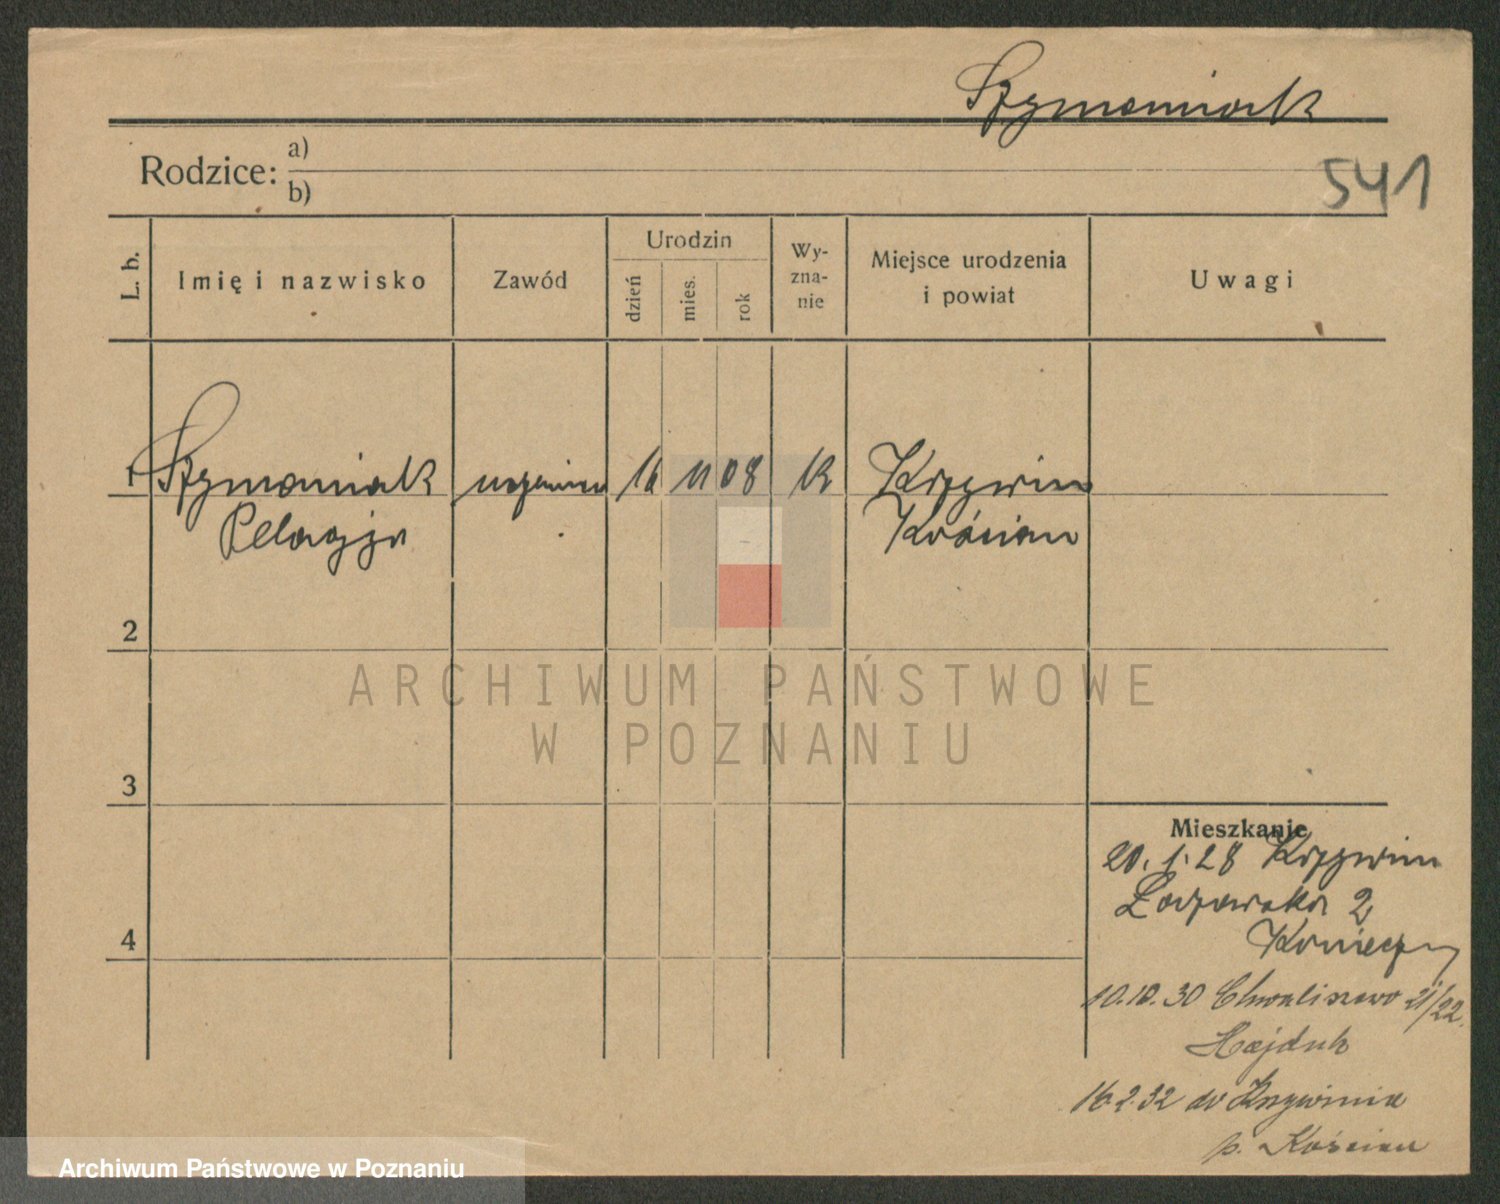 Szymaniak
Rodzice: a)
b)
541
L. b.
Imię i nazwisko
Zawód
Urodzin
dzień
mies.
rok
Wy-
zna-
nie
Miejsce urodzenia
i powiat
Uwagi
1 Szymaniak 16 11 08 k Krzywin
Pelagja Kościan
2
3
4
Mieszkanie
20. 1. 28 Krzywin
2
Konieczny
10.10.30 Chwaliszewo 21/22.
Hajduk
16.2.32 do Krzywinia
p. Kościan
ARCHIWUM PAŃSTWOWE
W POZNANIU
Archiwum Państwowe w Poznaniu